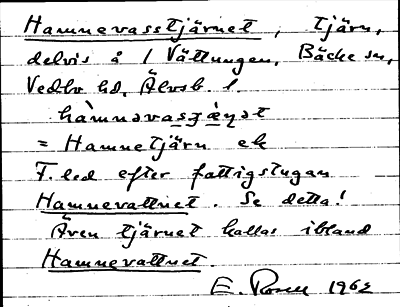 Hamnevasstjärnet, tjärn,
delvis å / Vättungen, Bäcke sn,
Vedbo hd, Älvsb. l.
= Hamnetjärn ek
F. led efter fattigstugan
Hamnevattnet. Se detta!
Även tjärnet kallas ibland
Hamnevattnet.
E. 1962